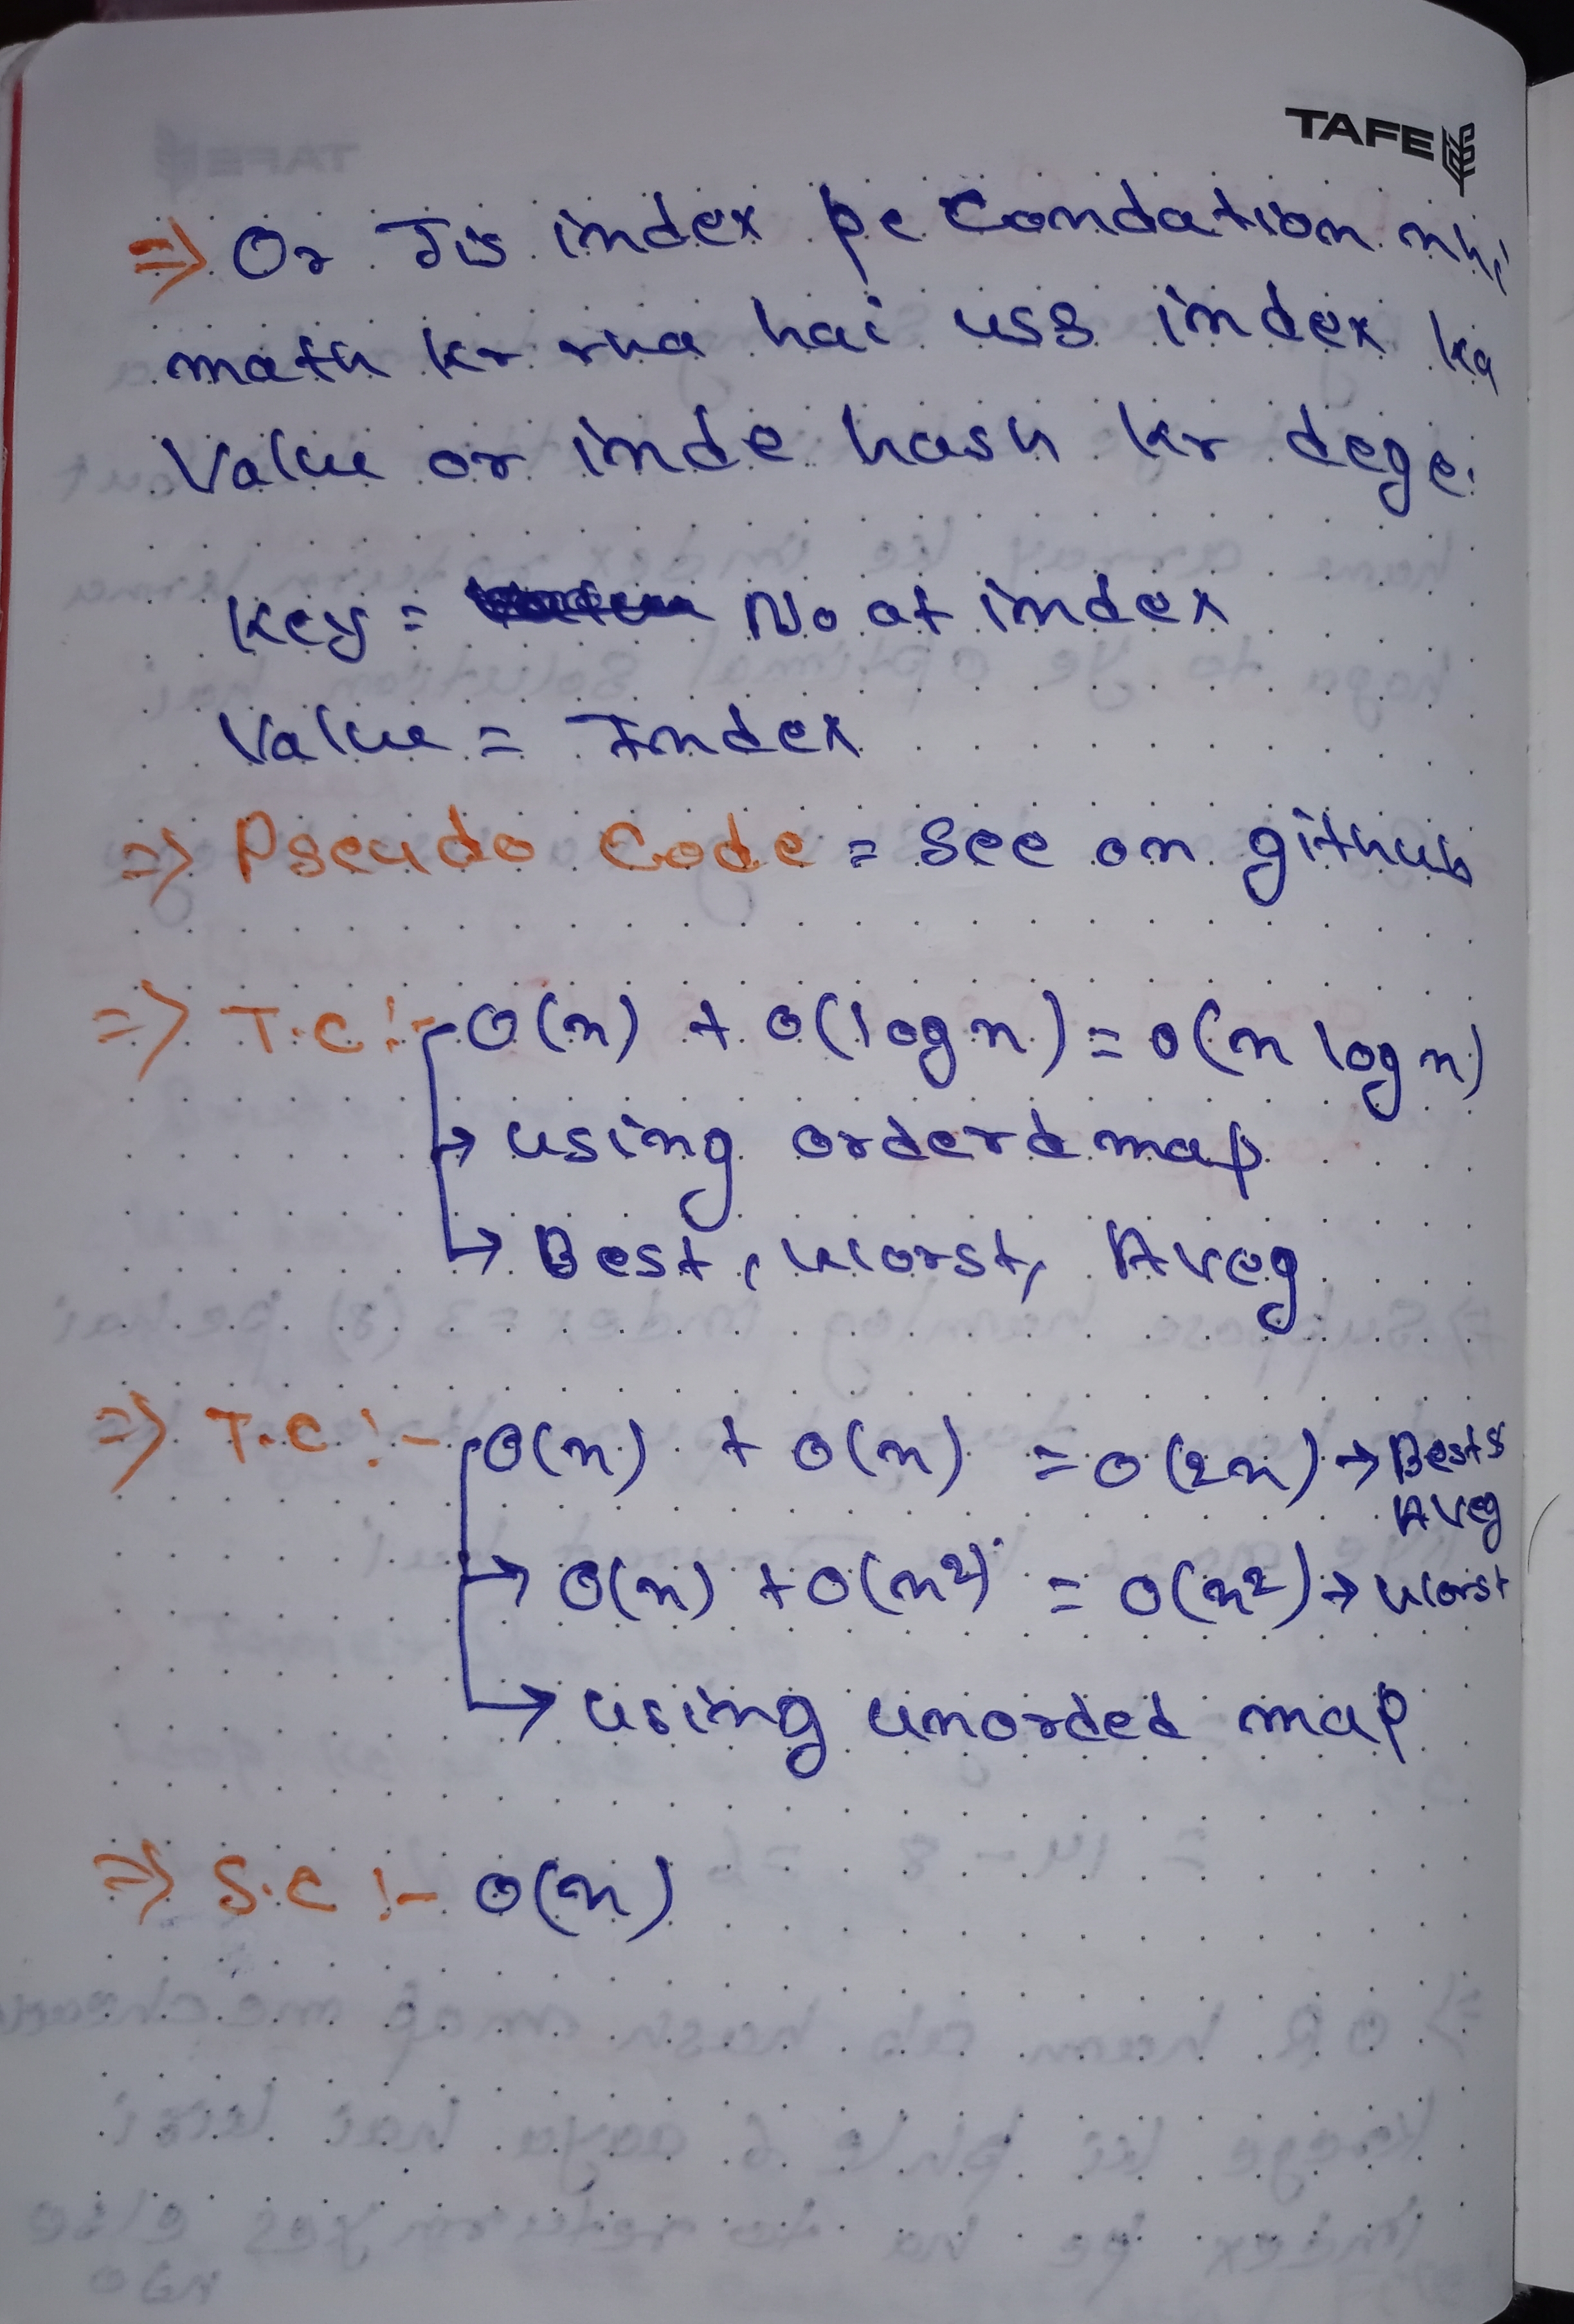 TAFE
=> Or Jis index pe Condation nhi
math kr rha hai uss index ka
Value or inde hash kr dege.
Key = No at index
Value = Index
=> Pseudo Code = See on github
=> T.C :- O(n) + O(log n) = O(n log n)
→ using orderd map
→ Best, Worst, Aveg
=> T.C :- O(n) + O(n) = O(2n) → Best &
Aveg
→ O(n) + O(n²) = O(n²) → Worst
→ using unorded map
=> S.C :- O(n)